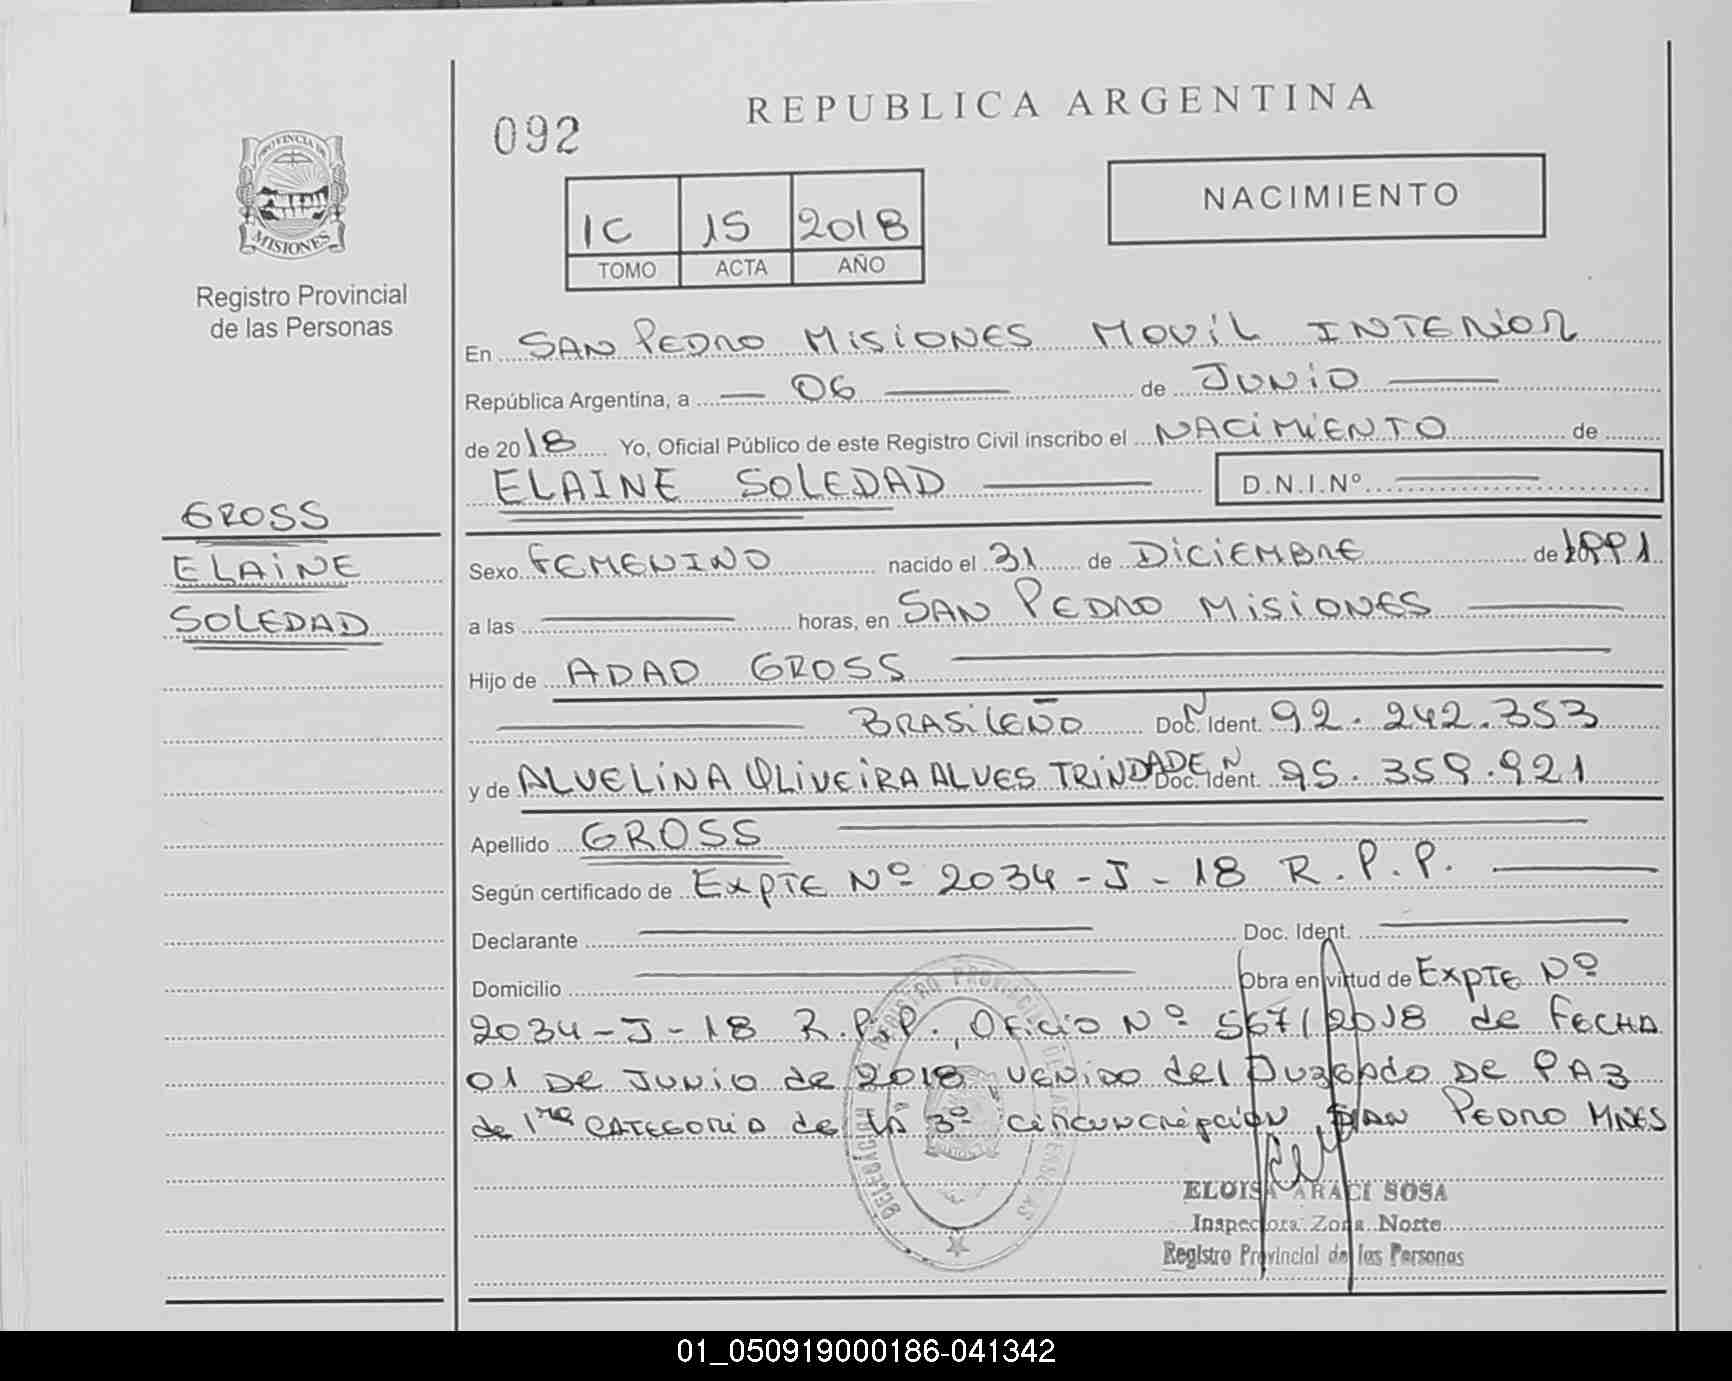 REPUBLICA ARGENTINA
092
PROVINCIA DE
MISIONES
Registro Provincial
de las Personas
IC 15 2018
TOMO ACTA AÑO
NACIMIENTO
En SAN PEDRO MISIONES MOVIL INTERIOR
República Argentina, a 06 de JUNIO
de 2018 Yo, Oficial Público de este Registro Civil inscribo el NACIMIENTO de
ELAINE SOLEDAD D.N.I.Nº
GROSS
ELAINE
SOLEDAD
Sexo FEMENINO nacido el 31 de DICIEMBRE de 1991
a las horas, en SAN PEDRO MISIONES
Hijo de ADAO GROSS
BRASILEÑO Doc. Ident. 92.242.353
y de ALVELINA OLIVEIRA ALVES TRINDADE Doc. Ident. 95.359.921
Apellido GROSS
Según certificado de EXPTE Nº 2034-J-18 R.P.P.
Declarante Doc. Ident.
Domicilio Obra en virtud de EXPTE Nº
2034-J-18 R.P.P., OFICIO Nº 567/2018 de FECHA
01 DE JUNIO de 2018, VENIDO del JUZGADO DE PAZ
de 1ra CATEGORIA de la 3º circunscripción SAN PEDRO MNES
ELOISA ARACI SOSA
Inspectora Zona Norte
Registro Provincial de las Personas
01_050919000186-041342